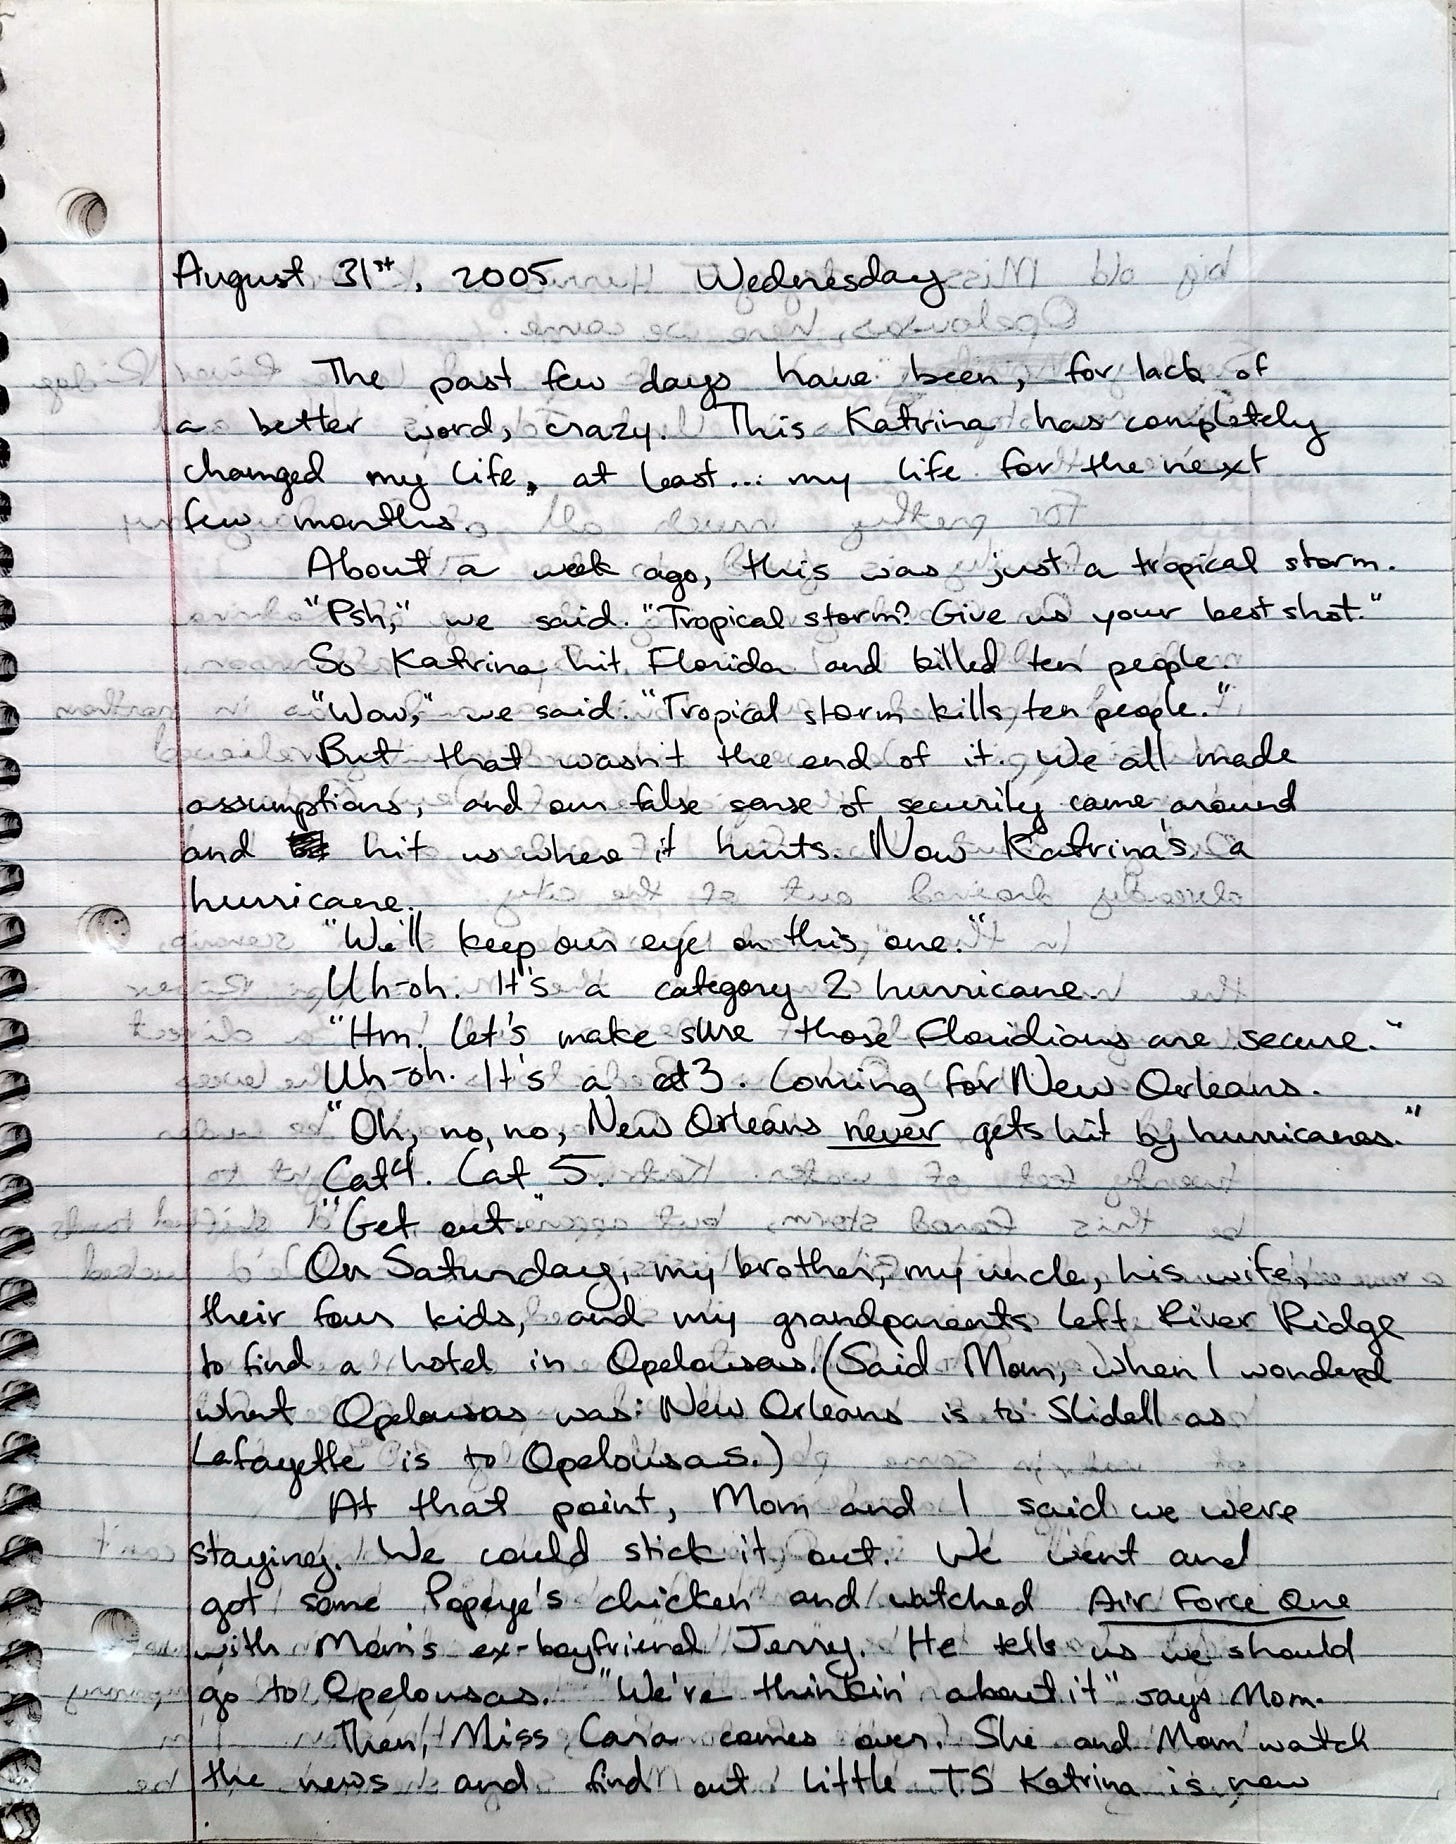 August 31st, 2005 Wednesday
The past few days have been, for lack of
a better word, crazy. This Katrina has completely
changed my life, at least... my life for the next
few months.
About a week ago, this was just a tropical storm.
"Psh," we said. "Tropical storm? Give us your best shot."
So Katrina hit Florida and killed ten people.
"Wow," we said. "Tropical storm kills ten people."
But that wasn't the end of it. We all made
assumptions, and our false sense of security came around
and hit us where it hurts. Now Katrina's a
hurricane.
"We'll keep our eye on this one."
Uh-oh. It's a category 2 hurricane.
"Hm. Let's make sure those Floridians are secure."
Uh-oh. It's a cat 3. Coming for New Orleans.
"Oh, no, no, New Orleans never gets hit by hurricanes."
Cat 4. Cat 5.
"Get out."
On Saturday, my brother, my uncle, his wife,
their four kids, and my grandparents left River Ridge
to find a hotel in Opelousas. (Said Mom, when I wonderd
what Opelousas was: New Orleans is to Slidell as
Lafayette is to Opelousas.)
At that point, Mom and I said we were
staying. We could stick it out. We went and
got some Popeye's chicken and watched Air Force One
with Mom's ex-boyfriend Jerry. He tells us we should
go to Opelousas. "We're thinkin' about it" says Mom.
Then, Miss Cara comes over. She and Mom watch
the news and find out little TS Katrina is now